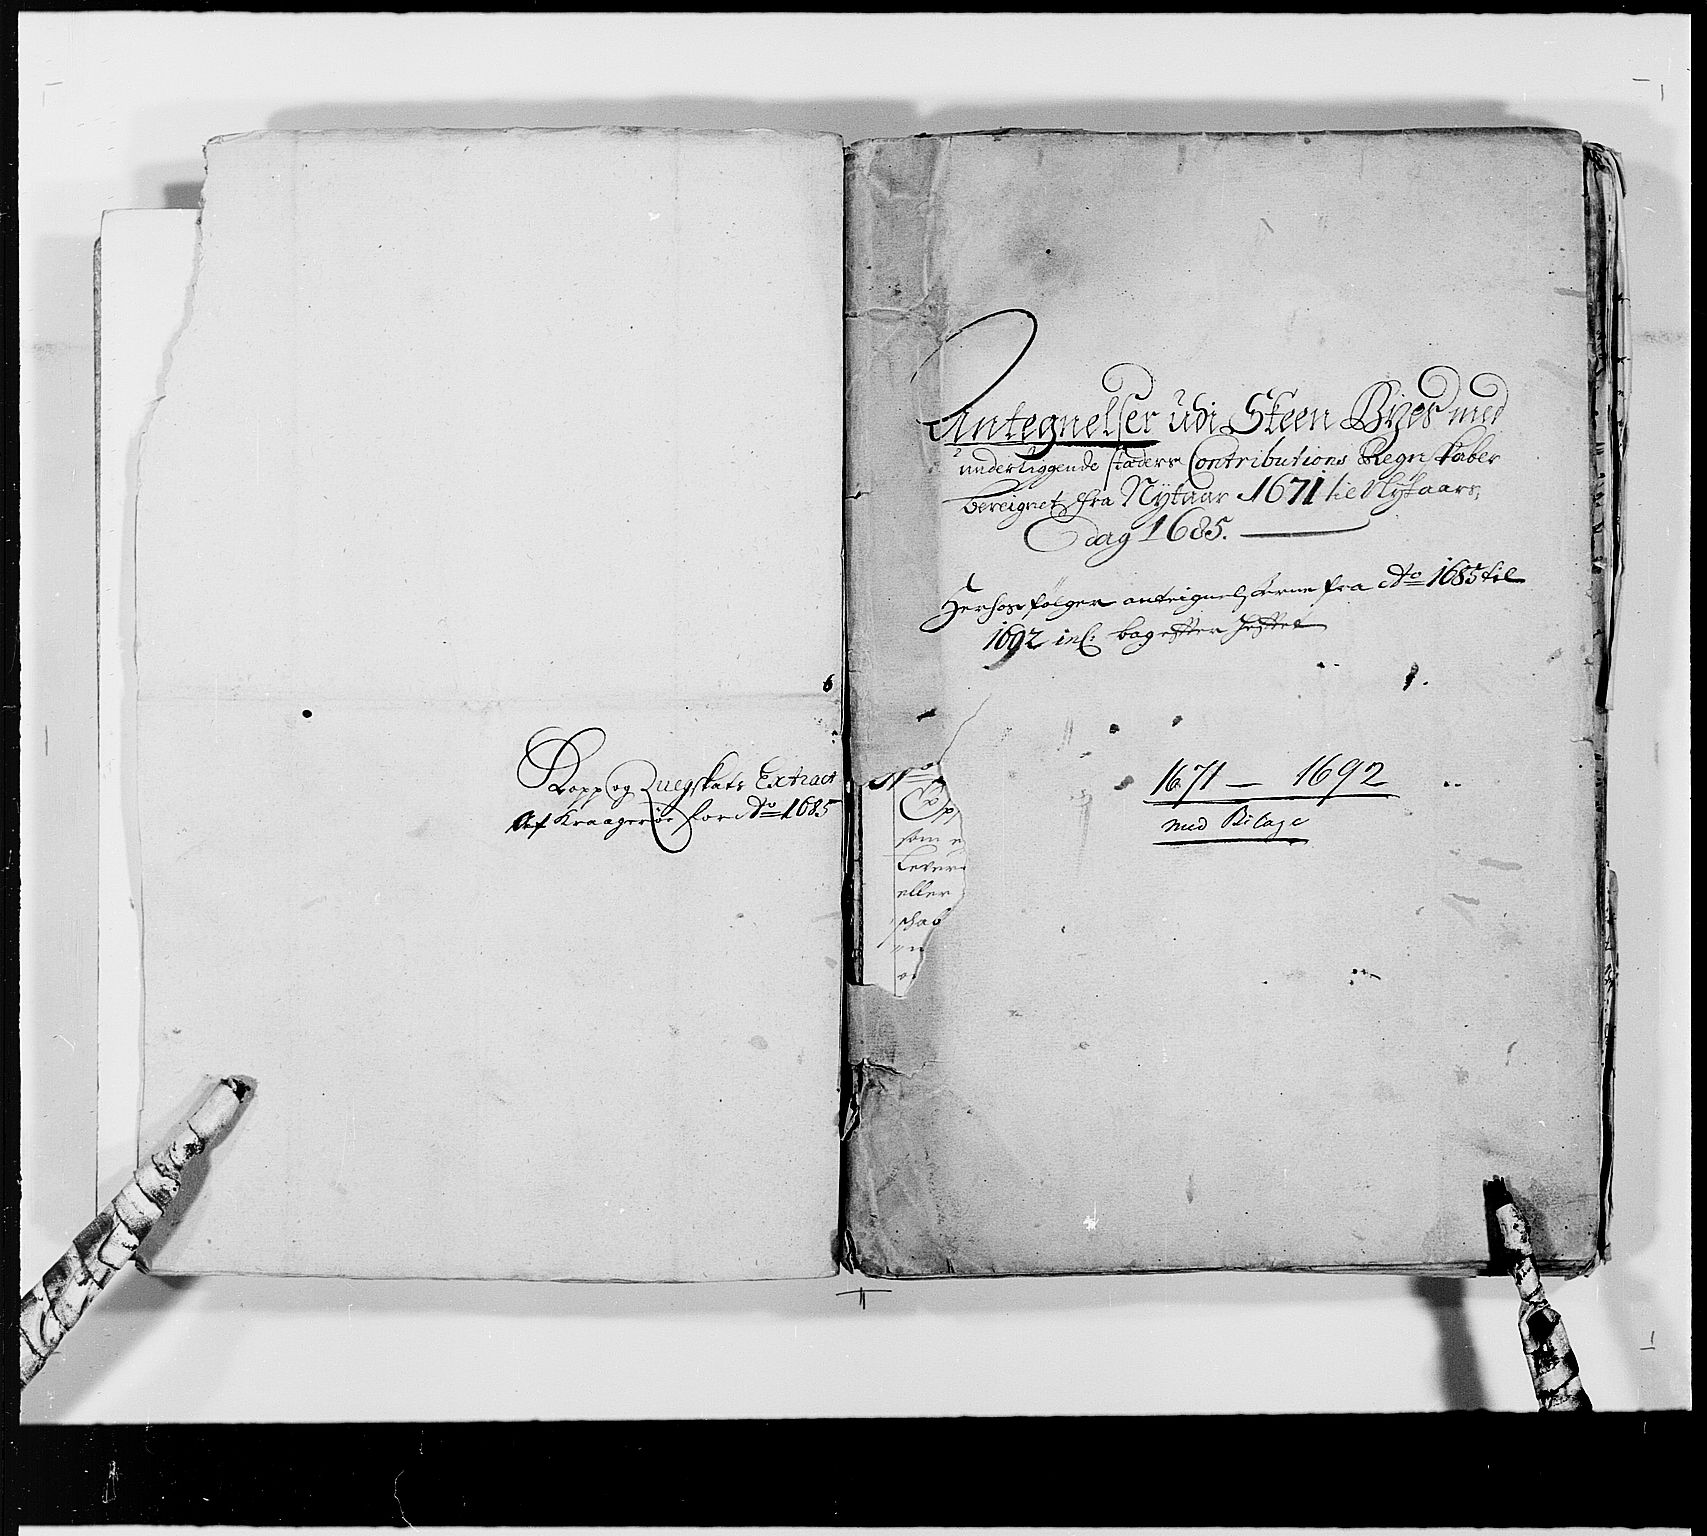 Kopp og Quegskats Extract
Af Kraagerøe for Ao 1685
Antegnelser udi Skeen Byes med
underliggende stæders Contributions Regnskaber
bereignet fra Nytaar 1671 til Nytaars
dag 1685.
Herhos følger anteignelserne fra Ao 1685 til
1692 incl: bag efter heftet
No
som
Lever
eller
schab
1671 — 1692
med Bilage